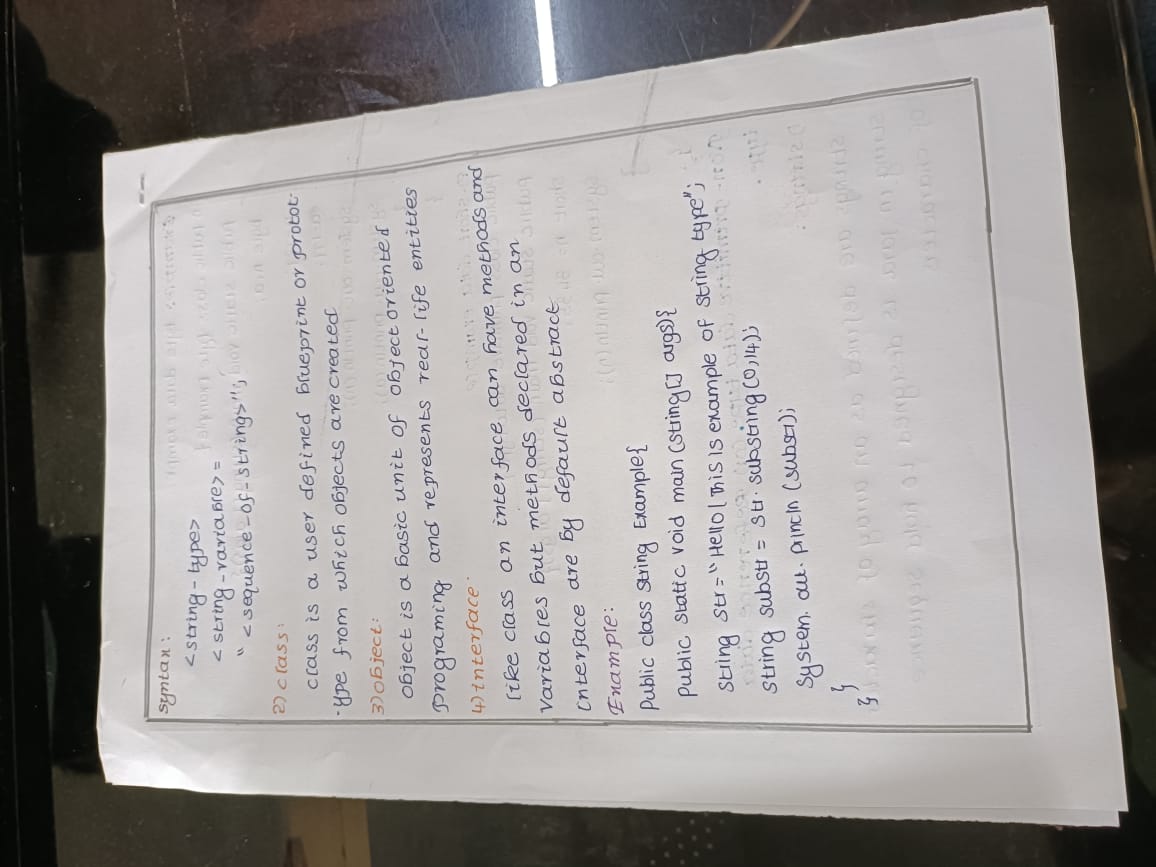 syntax:
<string-type>
<string-variable>=
"<sequence-of-string>";
2) class:
class is a user defined blueprint or protot-
-ype from which objects are created
3) object:
object is a basic unit of object oriented
programing and represents real-life entities
4) interface.
like class an interface can have methods and
variables but methods declared in an
interface are by default abstract
Example:
Public class String Example{
Public static void main (string[] args){
String str="Hello! This is example of string type";
String substr = str. substring (0,14);
System. out. println (substr);
}
}